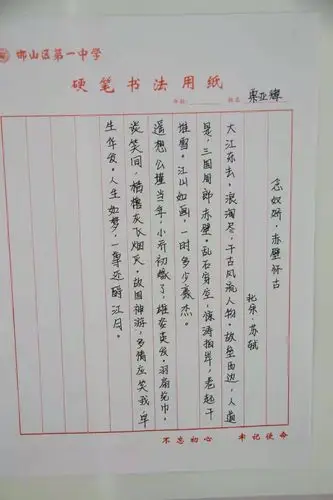 邯山区第一中学
硬笔书法用纸
姓名 栗亚
念奴娇·赤壁怀古
北宋·苏轼
大江东去,浪淘尽,千古风流人物。故垒西边,人道
是,三国周郎赤壁。乱石穿空,惊涛拍岸,卷起千
堆雪。江山如画,一时多少豪杰。
遥想公瑾当年,小乔初嫁了,雄姿英发。羽扇纶巾,
谈笑间,樯橹灰飞烟灭。故国神游,多情应笑我,早
生华发。人生如梦,一尊还酹江月。
不忘初心 牢记使命